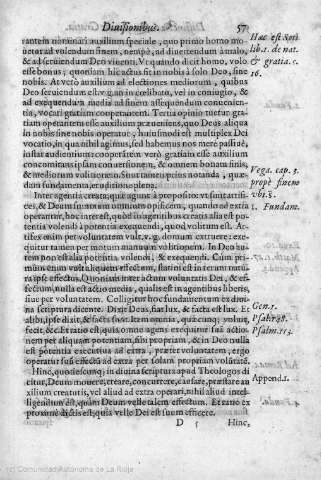 Diuissionibus. 57
rantem nomināt auxilium speciale, quo primò homo mo-
uetur ad volendum finem, nempè, ad diuertendum à malo,
& ad seruiendum Deo viuenti. Vt quando dicit homo, volo
esse bonus, quoniam hic actus fit in nobis à solo Deo, sine
nobis. At verò auxilium ad electiones mediorum, quibus
Deo seruiendum est, v.g. an in cælibatu, vel in coniugio, &
ad exequendum media ad finem assequendum conuenien-
tia, vocāt gratiam cooperantem. Tertia opinio tuetur gra-
tiam operantem esse auxilium præueniens, quo Deus aliqua
in nobis sine nobis operatur, huiusmodi est multiplex Dei
vocatio, in qua nihil agimus, sed habemus nos merè passiuè,
instar audientium: cooperantem verò gratiam esse auxilium
concomitans ipsam conuersionem, & omnem bonam finis,
& mediorum volitionem. Sit
fundamenta, eruditione plena.
Inter agentia creata, quæ agunt à proposito, vt sunt artifi-
ces, & Deum summum omnium opificem, quando ad extra
operantur, hoc interest, quod in agentibus creatis alia est po-
tentia volendi à potentia exequendi, quod volitum est. Ar-
tifex enim per voluntatem vult, v. g. domum extruere: exe-
quitur tamen per motum manuum volitionem. In Deo au-
tem non est alia potentia volendi, & exequendi. Cum pri-
mùm enim vult aliquem effectum, statim est in rerum natu-
ra ipse effectus. Quoniam inter actum voluntatis Dei, & ef-
fectum, nulla est actio media, qualis est in agentibus liberis,
siue per voluntatem. Colligitur hoc fundamentum ex diui-
na scriptura dicente. Dixit Deus, fiat lux, & facta est lux. Et
alibi, ipse dixit, & facta sunt. Et iterum, omnia, quæcunq; voluit,
fecit, &c. Et ratio est, quia omne agens exequitur suā actio-
nem per aliquam potentiam, sibi propriam, & in Deo nulla
est potentia executiua ad extra, præter voluntatem, ergo
operatur suos effectus ad extra per solam propriam volūtatē.
Hinc, quod sæcunq; in diuina scriptura apud Theologos di-
citur, Deum mouere, creare, concurrere, causare, præstare au-
xilium creaturis, vel aliud ad extra operari, nihil aliud intel-
ligendum est, quàm Deum velle talem effectum. Et ratio ex
proximè dictis est, quia velle Dei est suum efficere.
D 5 Hinc,
Hac est Soti
lib. 1. de nat.
& gratia. c.
16.
Vega. cap. 3.
propè finem
Vbi. 8.
1. Fundam.
Gen. 1.
Psal. 148.
Psalm. 113.
Append.
(c) Comunidad Autónoma de La Rioja